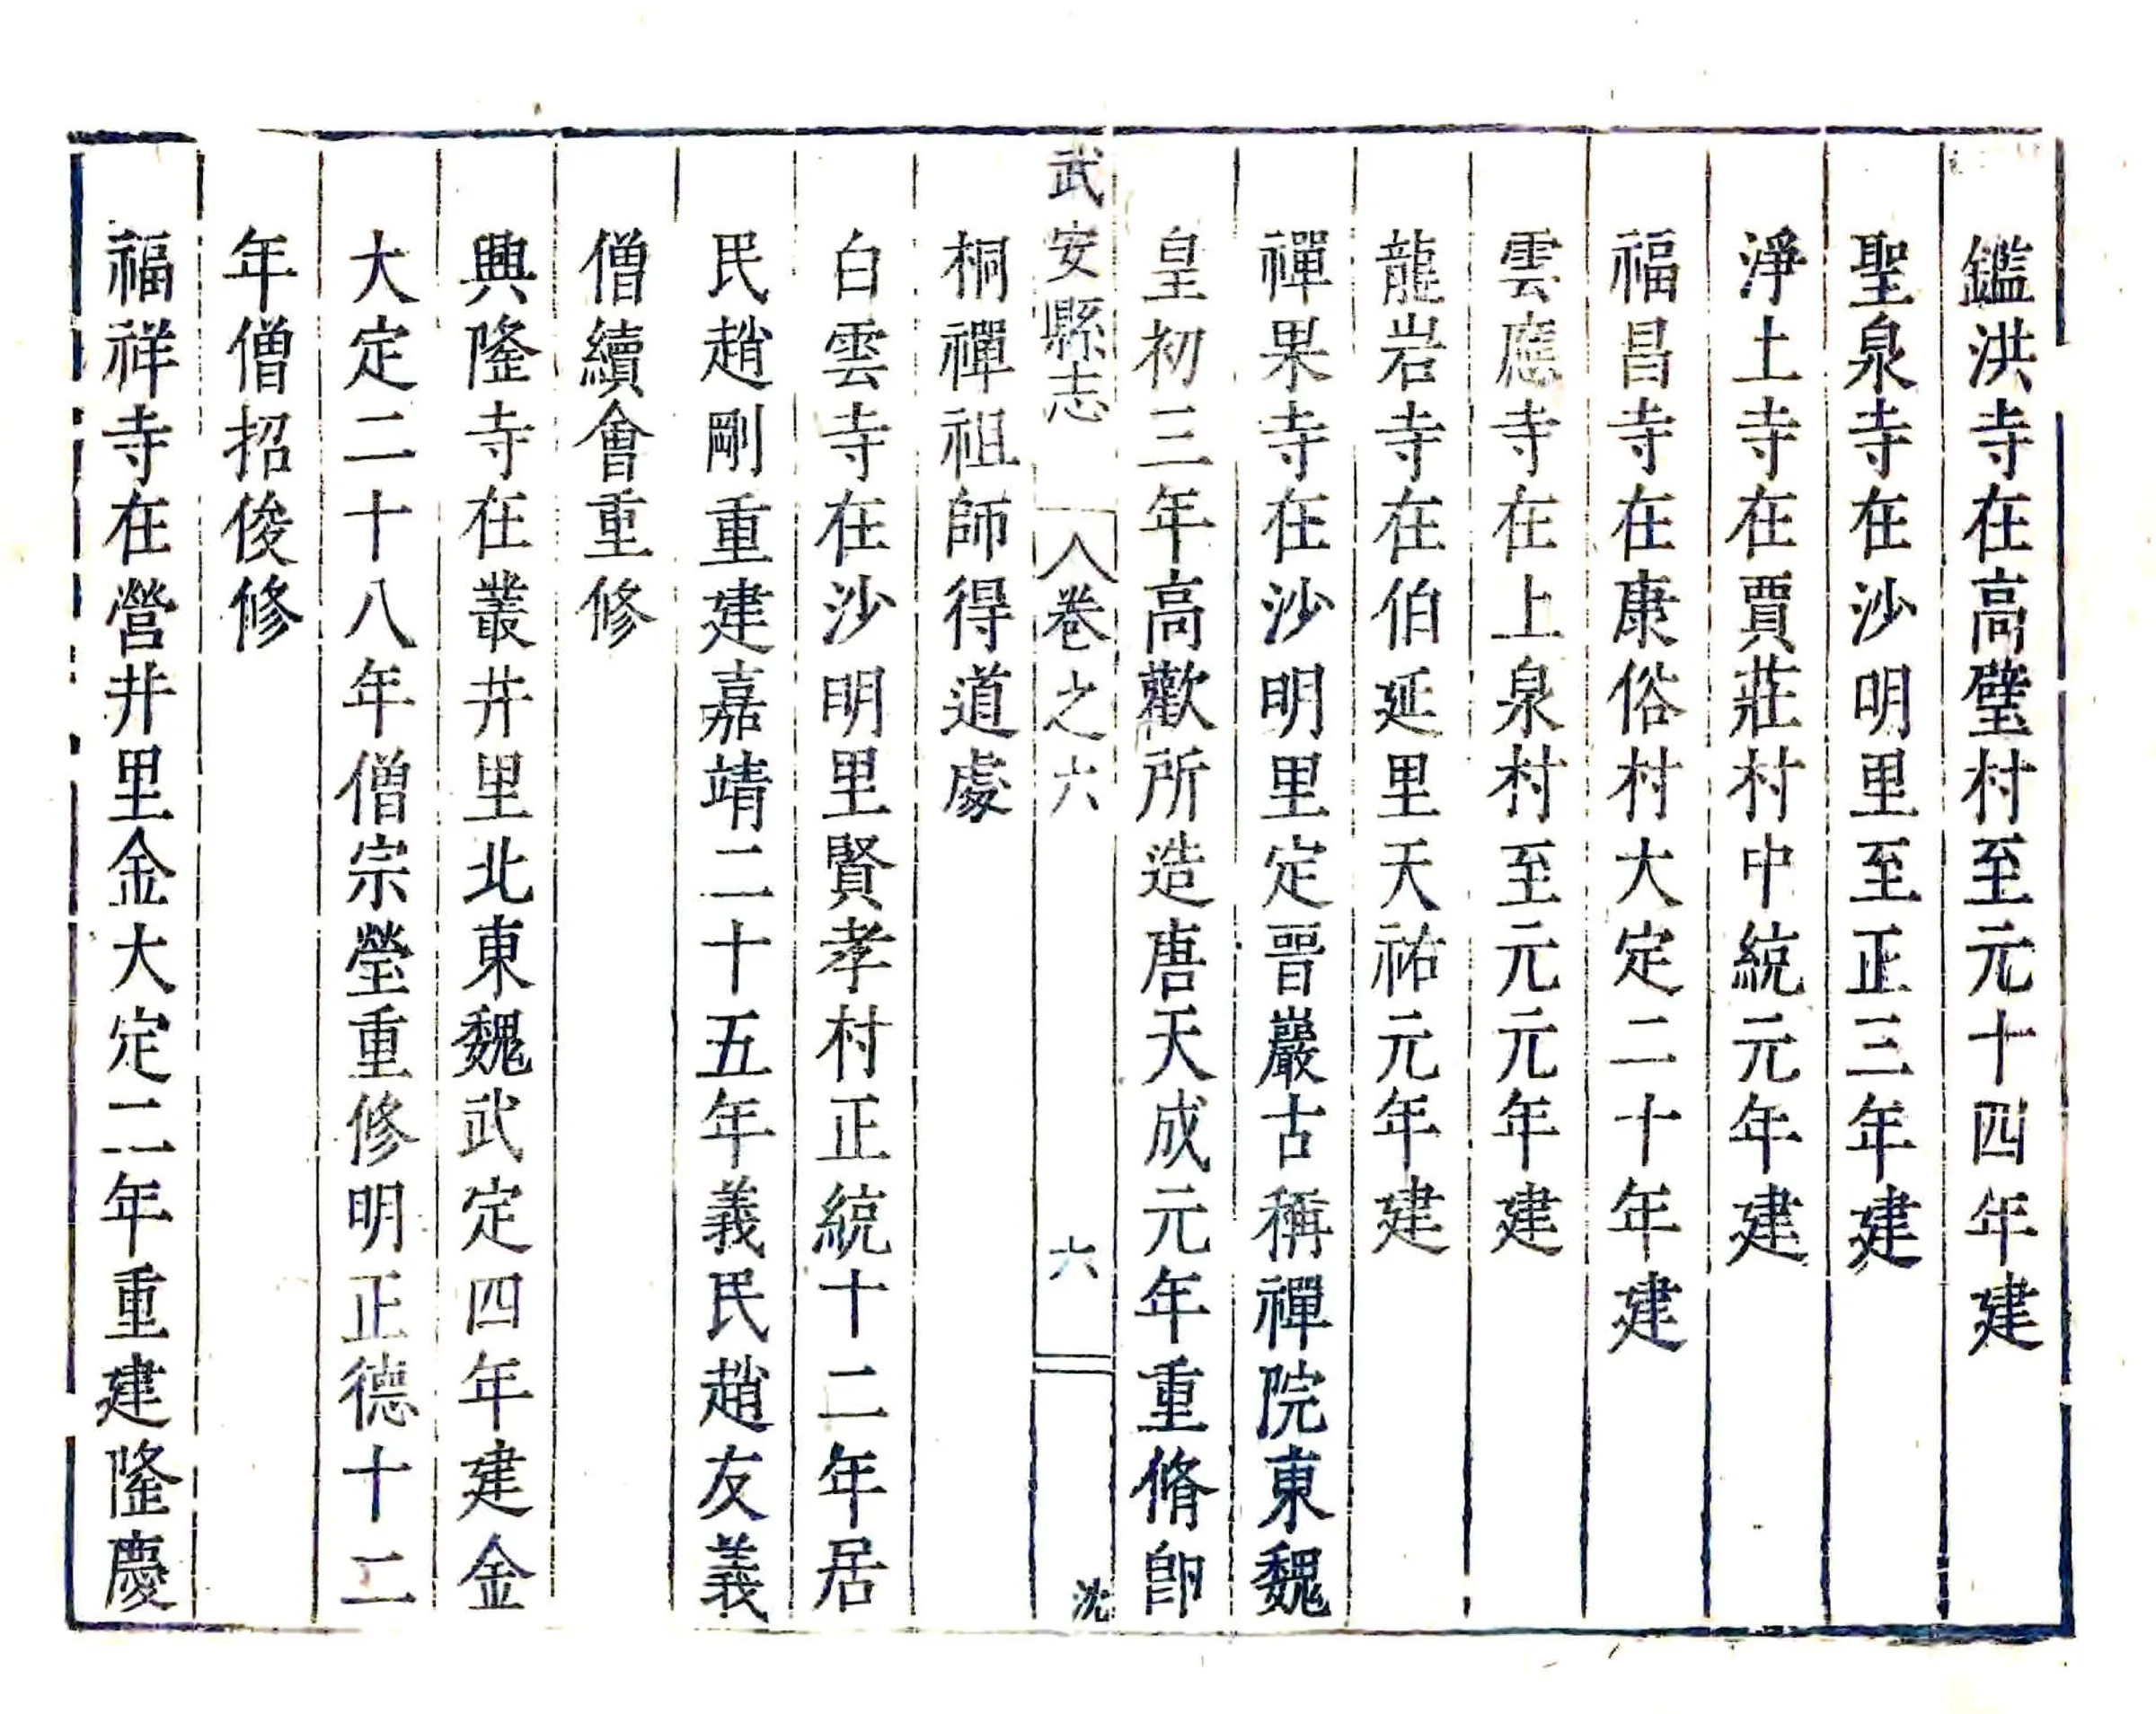 鑑洪寺在高壁村至元十四年建
聖泉寺在沙明里至正三年建
淨土寺在賈莊村中統元年建
福昌寺在康俗村大定二十年建
雲應寺在上泉村至元元年建
龍岩寺在伯延里天祐元年建
禪果寺在沙明里定晉巖古稱禪院東魏
皇初三年高歡所造唐天成元年重脩卽
武安縣志 卷之六 六 沈
桐禪祖師得道處
白雲寺在沙明里賢孝村正統十二年居
民趙剛重建嘉靖二十五年義民趙友義
僧續會重修
興隆寺在叢井里北東魏武定四年建金
大定二十八年僧宗瑩重修明正德十二
年僧招俊修
福祥寺在營井里金大定二年重建隆慶